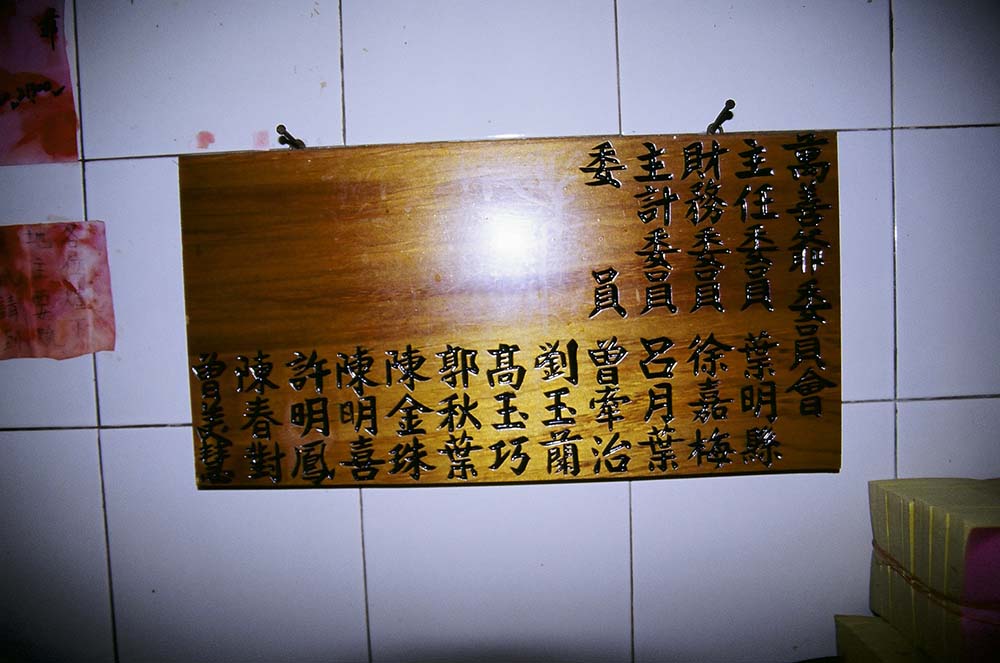 萬善爺委員會
主任委員 葉明縣
財務委員 徐嘉梅
主計委員 呂月葉
委員 曾牽治
劉玉蘭
高玉巧
郭秋葉
陳金珠
陳明喜
許明鳳
陳春對
曾美慧